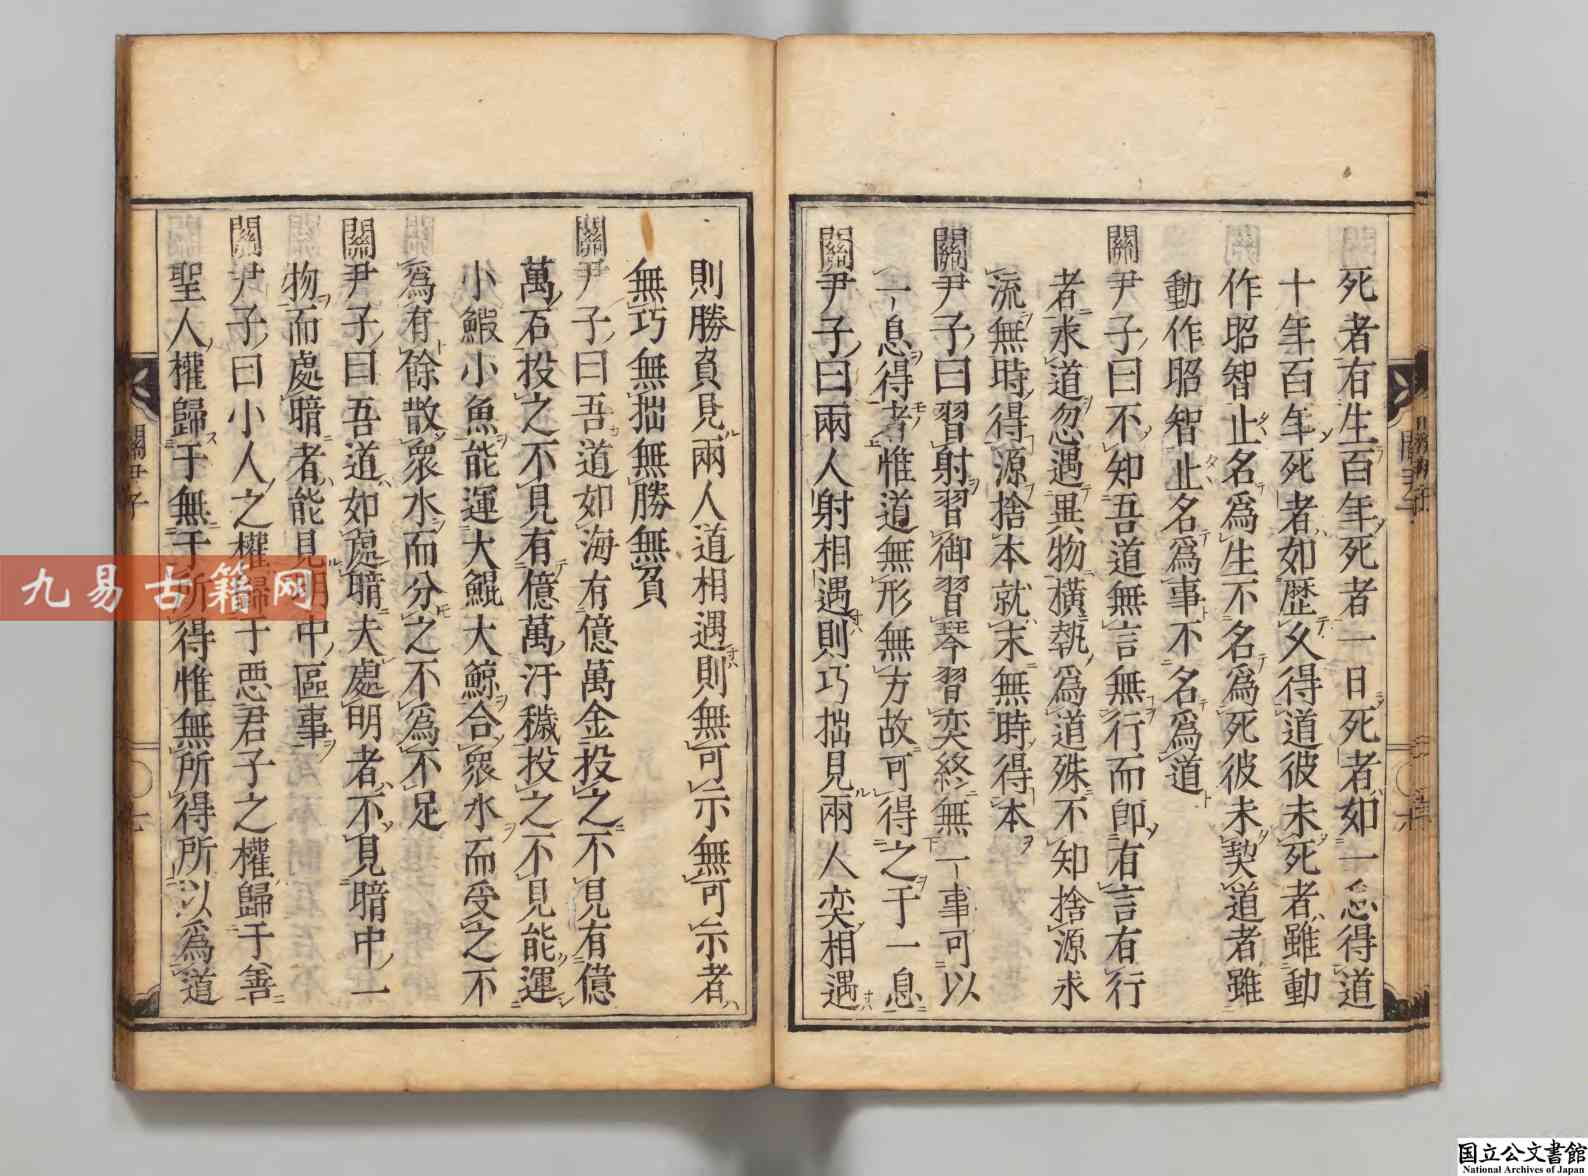 死者有生百年死者一日死者如一息得道
十年百年死者如歷久得道彼未死者雖動
作昭智止名爲生不名爲死彼未契道者雖
動作昭智止名爲事不名爲道
關尹子曰不知吾道無言無行而卽有言有行
者求道忽遇異物橫執爲道殊不知捨源求
流無時得源捨本就末無時得本
關尹子曰習射習御習琴習奕終無一事可以
一息得者惟道無形無方故可得之于一息
關尹子曰兩人射相遇則巧拙見兩人奕相遇
則勝負見兩人道相遇則無可示無可示者
無巧無拙無勝無負
關尹子曰吾道如海有億萬金投之不見有億
萬石投之不見有億萬汙穢投之不見能運
小鰕小魚能運大鯤大鯨合衆水而受之不
爲有餘散衆水而分之不爲不足
關尹子曰吾道如處暗夫處明者不見暗中一
物而處暗者能見明中區事
關尹子曰小人之權歸于惡君子之權歸于善
聖人權歸于無于所得惟無所得所以爲道
關尹子
九易古籍网
国立公文書館
National Archives of Japan